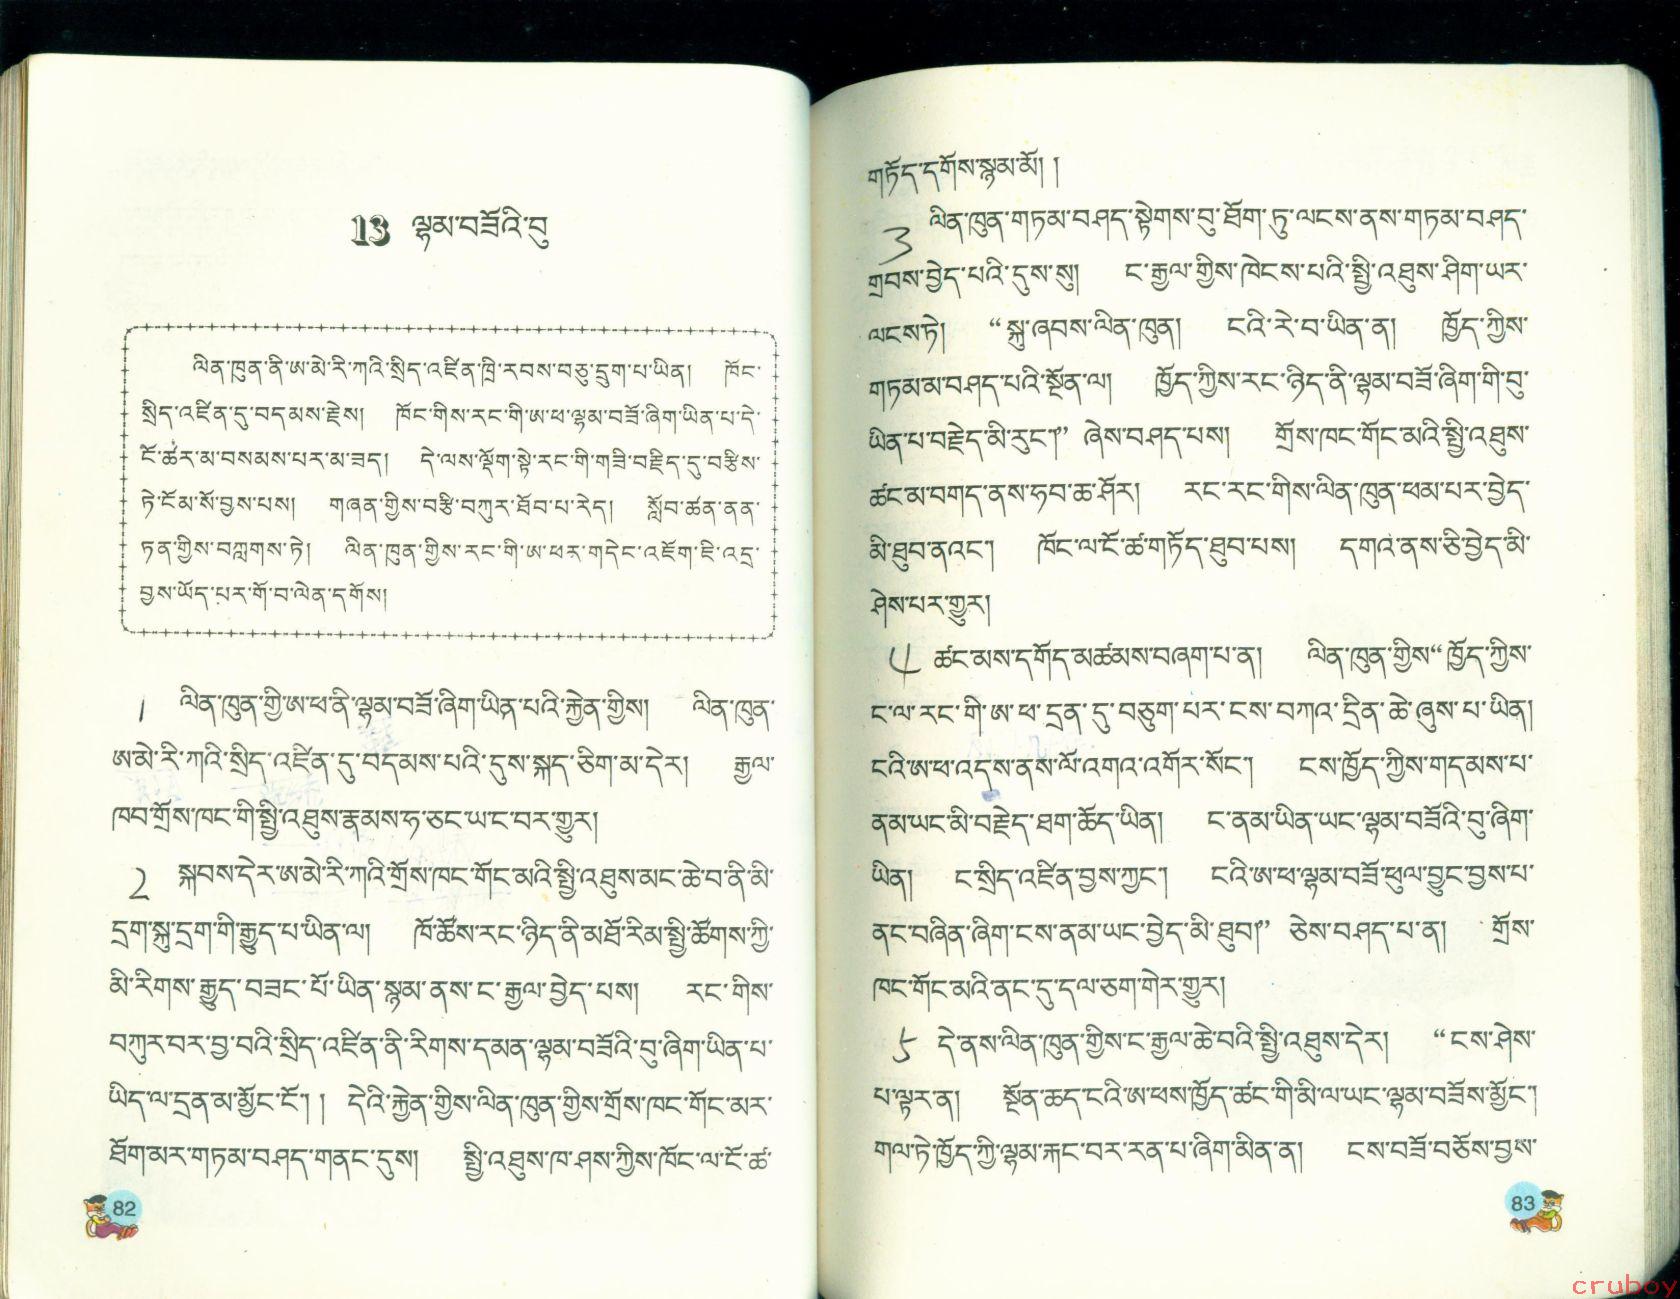 13 ལྷམ་བཟོའི་བུ
ལིན་ཁུན་ནི་ཨ་མེ་རི་ཀའི་སྲིད་འཛིན་ཁྲི་རབས་བཅུ་དྲུག་པ་ཡིན། ཁོང་
སྲིད་འཛིན་དུ་བདམས་རྗེས། ཁོང་གིས་རང་གི་ཨ་ཕ་ལྷམ་བཟོ་ཞིག་ཡིན་པ་དེ་
ངོ་ཚར་མ་བསམས་པར་མ་ཟད། དེ་ལས་ལྡོག་སྟེ་རང་གི་གཟི་བརྗིད་དུ་བརྩིས་
ཏེ་ངོམ་སོ་བྱས་པས། གཞན་གྱིས་བརྩི་བཀུར་ཐོབ་པ་རེད། སློབ་ཚན་ནན་
ཏན་གྱིས་བཀླགས་ཏེ། ལིན་ཁུན་གྱིས་རང་གི་ཨ་ཕར་གདེང་འཇོག་ཇི་འདྲ་
བྱས་ཡོད་པར་གོ་བ་ལེན་དགོས།
1 ལིན་ཁུན་གྱི་ཨ་ཕ་ནི་ལྷམ་བཟོ་ཞིག་ཡིན་པའི་རྐྱེན་གྱིས། ལིན་ཁུན་
ཨ་མེ་རི་ཀའི་སྲིད་འཛིན་དུ་བདམས་པའི་དུས་སྐད་ཅིག་མ་དེར། རྒྱལ་
ཁབ་གྲོས་ཁང་གི་སྤྱི་འཐུས་རྣམས་ཧ་ཅང་ཡ་ང་བར་གྱུར།
2 སྐབས་དེར་ཨ་མེ་རི་ཀའི་གྲོས་ཁང་གོང་མའི་སྤྱི་འཐུས་མང་ཆེ་བ་ནི་མི་
དྲག་སྐུ་དྲག་གི་རྒྱུད་པ་ཡིན་ལ། ཁོ་ཚོས་རང་ཉིད་ནི་མཐོ་རིམ་སྤྱི་ཚོགས་ཀྱི་
མི་རིགས་རྒྱུད་བཟང་པོ་ཡིན་སྙམ་ནས་ང་རྒྱལ་བྱེད་པས། རང་གིས་
བཀུར་བར་བྱ་བའི་སྲིད་འཛིན་ནི་རིགས་དམན་ལྷམ་བཟོའི་བུ་ཞིག་ཡིན་པ་
ཡིད་ལ་དྲན་མ་མྱོང་ངོ་། ། དེའི་རྐྱེན་གྱིས་ལིན་ཁུན་གྱིས་གྲོས་ཁང་གོང་མར་
ཐོག་མར་གཏམ་བཤད་གནང་དུས། སྤྱི་འཐུས་ཁ་ཤས་ཀྱིས་ཁོང་ལ་ངོ་ཚ་
82
གཏོད་དགོས་སྙམ་མོ། །
3 ལིན་ཁུན་གཏམ་བཤད་སྟེགས་བུ་ཐོག་ཏུ་ལངས་ནས་གཏམ་བཤད་
གྲབས་བྱེད་པའི་དུས་སུ། ང་རྒྱལ་གྱིས་ཁེངས་པའི་སྤྱི་འཐུས་ཤིག་ཡར་
ལངས་ཏེ། “སྐུ་ཞབས་ལིན་ཁུན། ངའི་རེ་བ་ཡིན་ན། ཁྱོད་ཀྱིས་
གཏམ་མ་བཤད་པའི་སྔོན་ལ། ཁྱོད་ཀྱིས་རང་ཉིད་ནི་ལྷམ་བཟོ་ཞིག་གི་བུ་
ཡིན་པ་བརྗེད་མི་རུང་།” ཞེས་བཤད་པས། གྲོས་ཁང་གོང་མའི་སྤྱི་འཐུས་
ཚང་མ་བགད་ནས་ཧབ་ཆ་ཤོར། རང་རང་གིས་ལིན་ཁུན་ཕམ་པར་བྱེད་
མི་ཐུབ་ནའང་། ཁོང་ལ་ངོ་ཚ་གཏོད་ཐུབ་པས། དགའ་ནས་ཅི་བྱེད་མི་
ཤེས་པར་གྱུར།
4 ཚང་མས་དགོད་མཚམས་བཞག་པ་ན། ལིན་ཁུན་གྱིས“ཁྱོད་ཀྱིས་
ང་ལ་རང་གི་ཨ་ཕ་དྲན་དུ་བཅུག་པར་ངས་བཀའ་དྲིན་ཆེ་ཞུས་པ་ཡིན།
ངའི་ཨ་ཕ་འདས་ནས་ལོ་འགའ་འགོར་སོང་། ངས་ཁྱོད་ཀྱིས་གདམས་པ་
ནམ་ཡང་མི་བརྗེད་ཐག་ཆོད་ཡིན། ང་ནམ་ཡིན་ཡང་ལྷམ་བཟོའི་བུ་ཞིག་
ཡིན། ང་སྲིད་འཛིན་བྱས་ཀྱང་། ངའི་ཨ་ཕ་ལྷམ་བཟོ་ཕུལ་བྱུང་བྱས་པ་
ནང་བཞིན་ཞིག་ངས་ནམ་ཡང་བྱེད་མི་ཐུབ།” ཅེས་བཤད་པ་ན། གྲོས་
ཁང་གོང་མའི་ནང་དུ་དལ་ཅག་གེར་གྱུར།
5 དེ་ནས་ལིན་ཁུན་གྱིས་ང་རྒྱལ་ཆེ་བའི་སྤྱི་འཐུས་དེར། “ངས་ཤེས་
པ་ལྟར་ན། སྔོན་ཆད་ངའི་ཨ་ཕས་ཁྱོད་ཚང་གི་མི་ལ་ཡང་ལྷམ་བཟོས་མྱོང་།
གལ་ཏེ་ཁྱོད་ཀྱི་ལྷམ་རྐང་བར་རན་པ་ཞིག་མིན་ན། ངས་བཟོ་བཅོས་བྱས་
83
cruboy